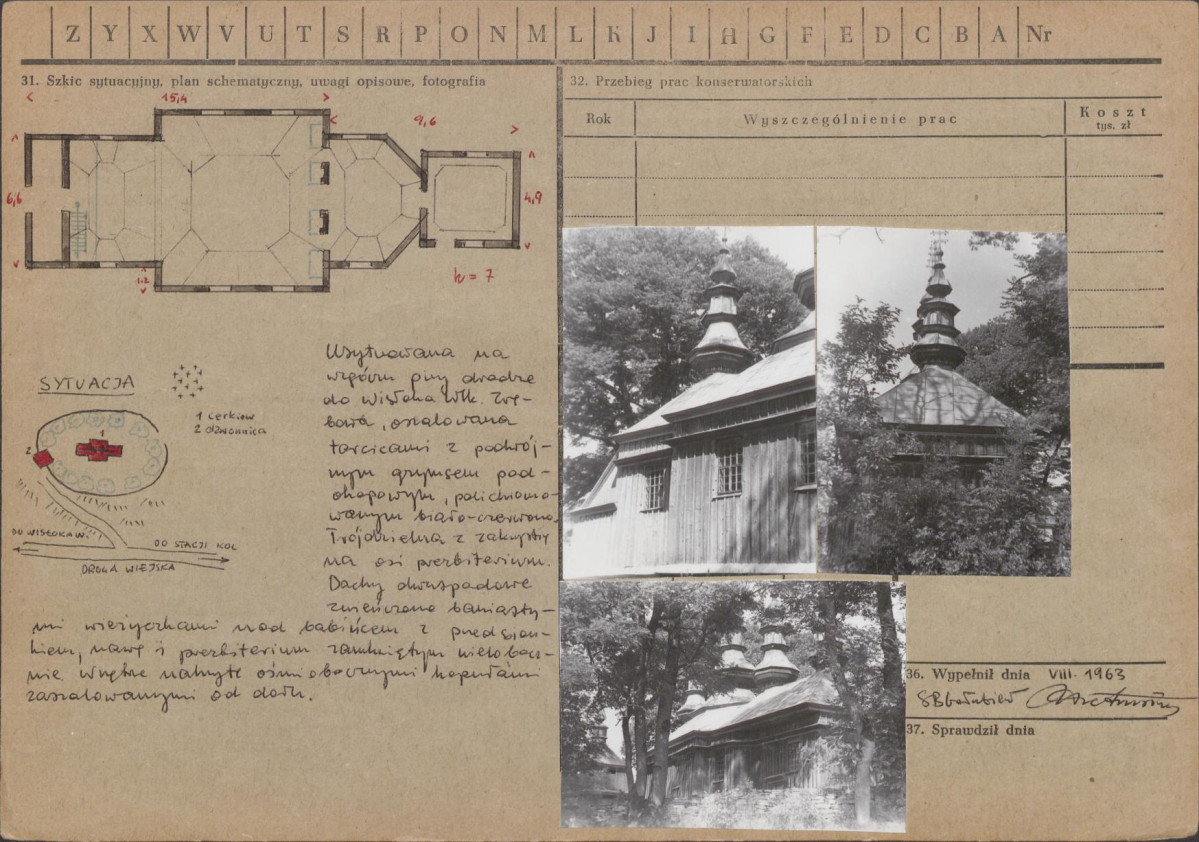 Z Y X W V U T S R P O N M L K J I H G F E D C B A Nr
31. Szkic sytuacyjny, plan schematyczny, uwagi opisowe, fotografia
15,4
9,6
6,6
4,9
1.2
h = 7
SYTUACJA
1 cerkiew
2 dzwonnica
1
2
DO WISŁOKA W.
DO STACJI KOL
DROGA WIEJSKA
Usytuowana na
wzgórzu przy drodze
do Wisłoka Wlk. Zrę-
bowa, oszalowana
tarcicami z podwój-
nym gzymsem pod-
okapowym, polichromo-
wanym biało-czerwono.
Trójdzielna z zakrystią
na osi prezbiterium.
Dachy dwuspadowe
zwieńczone baniasty-
mi wieżyczkami nad babińcem z przedsion-
kiem, nawą i prezbiterium zamkniętym wielobocz-
nie. Wnętrze nakryte ośmiobocznymi kopułami
zaszalowanymi od dołu.
32. Przebieg prac konserwatorskich
Rok
Wyszczególnienie prac
Koszt
tys. zł
36. Wypełnił dnia VIII. 1963
37. Sprawdził dnia